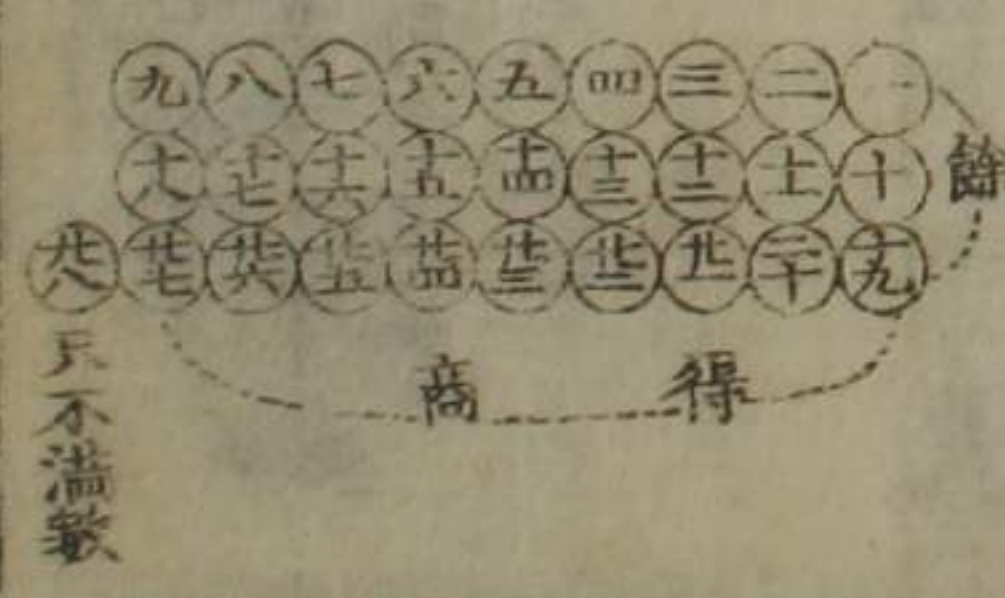 一 二 三 四 五 六 七 八 九
十 十一 十二 十三 十四 十五 十六 十七 十八
十九 二十 廿一 廿二 廿三 廿四 廿五 廿六 廿七 廿八
餘
得商
不滿數